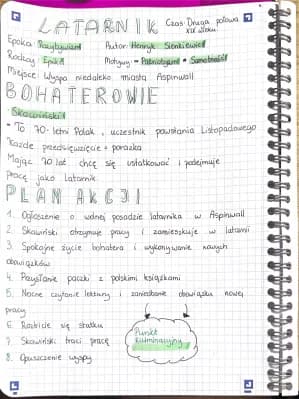 LATARNIK Czas: Druga połowa
XIX wieku
Epoka: Pozytywizm Autor: Henryk Sienkiewicz
Rodzaj: Epika Motywy: Patriotyzm Samotność
Miejsce: Wyspa niedaleko miasta Aspinwall
BOHATEROWIE
Skawiński
- To 70-letni Polak, uczestnik powstania Listopadowego
Każde przedsięwzięcie = porażka
Mając 70 lat chce się ustatkować i podejmuje
pracę jako latarnik
PLAN AKCJI
1. Ogłoszenie o wolnej posadzie latarnika w Aspinwall
2. Skawiński otrzymuje pracę i zamieszkuje w latarni
3. Spokojne życie bohatera i wykonywanie nowych
obowiązków
4. Przysłanie paczki z polskimi książkami
5. Nocne czytanie lektury i zaniedbanie obowiązku nowej
pracy
6. Rozbicie się statku
7. Skawiński traci pracę
8. Opuszczenie wyspy
Punkt
kulminacyjny